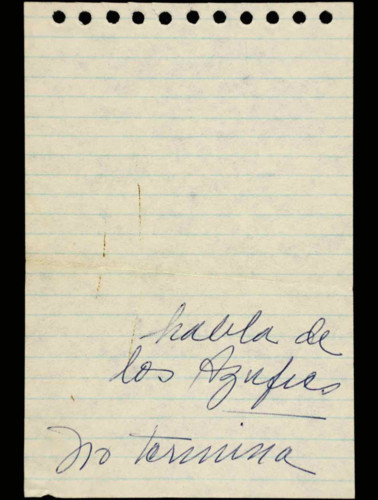 habla de
los Azufres
No termina